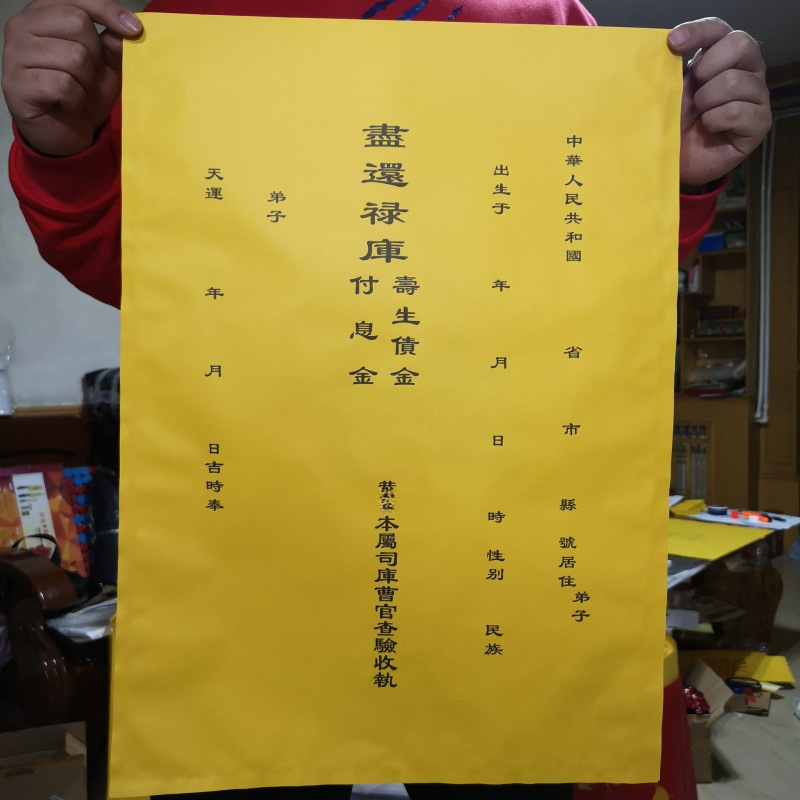 中華人民共和國 省 市 縣 號居住弟子
出生于 年 月 日 時 性别 民族
盡還禄庫
壽生債金
付息金
本屬司庫曹官查驗收執
弟子
天運 年 月 日吉時奉